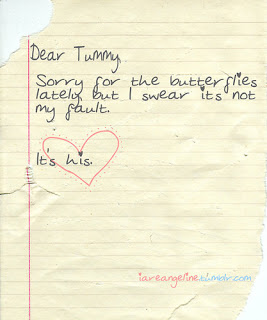 Dear Tummy,
Sorry for the butterflies
lately, but I swear its not
my fault.
It's his.
iareangeline.tumblr.com